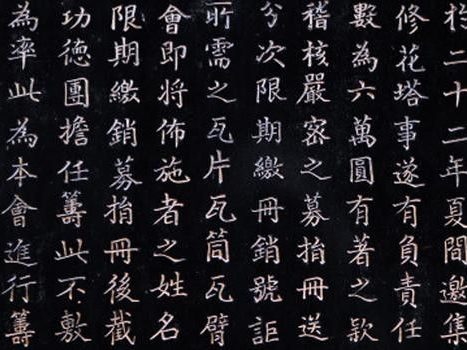 於二十二年夏間邀集
修花塔事遂有負責任
數為六萬圓有著之款
稽核嚴密之募捐冊送
分次限期繳冊銷號詎
所需之瓦片瓦筒瓦臂
會即將佈施者之姓名
限期繳銷募捐冊後截
功德團擔任籌此不敷
為率此為本會進行籌